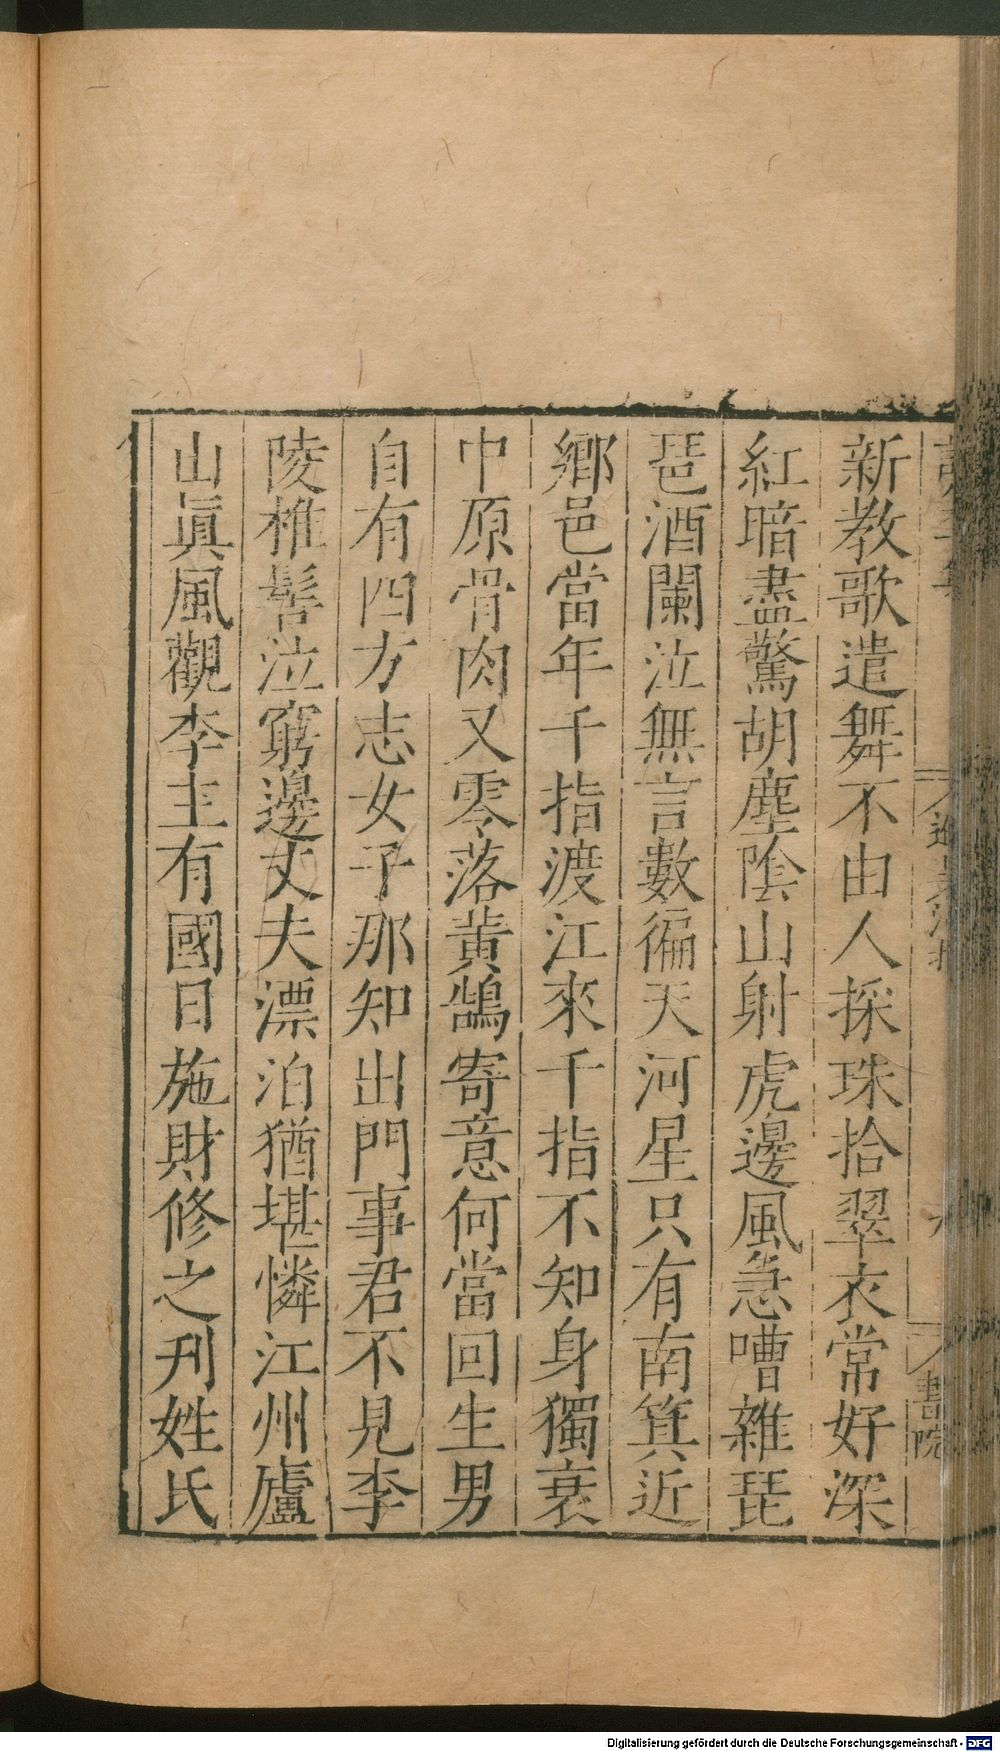 新教歌遣舞不由人採珠拾翠衣常好深
紅暗盡驚胡塵陰山射虎邊風急嘈雜琵
琶酒闌泣無言數徧天河星只有南箕近
鄉邑當年千指渡江來千指不知身獨衰
中原骨肉又零落黃鵠寄意何當回生男
自有四方志女子那知出門事君不見李
陵椎髻泣窮邊丈夫漂泊猶堪憐江州廬
山眞風觀李主有國日施財修之刋姓氏
書院
Digitalisierung gefördert durch die Deutsche Forschungsgemeinschaft - DFG